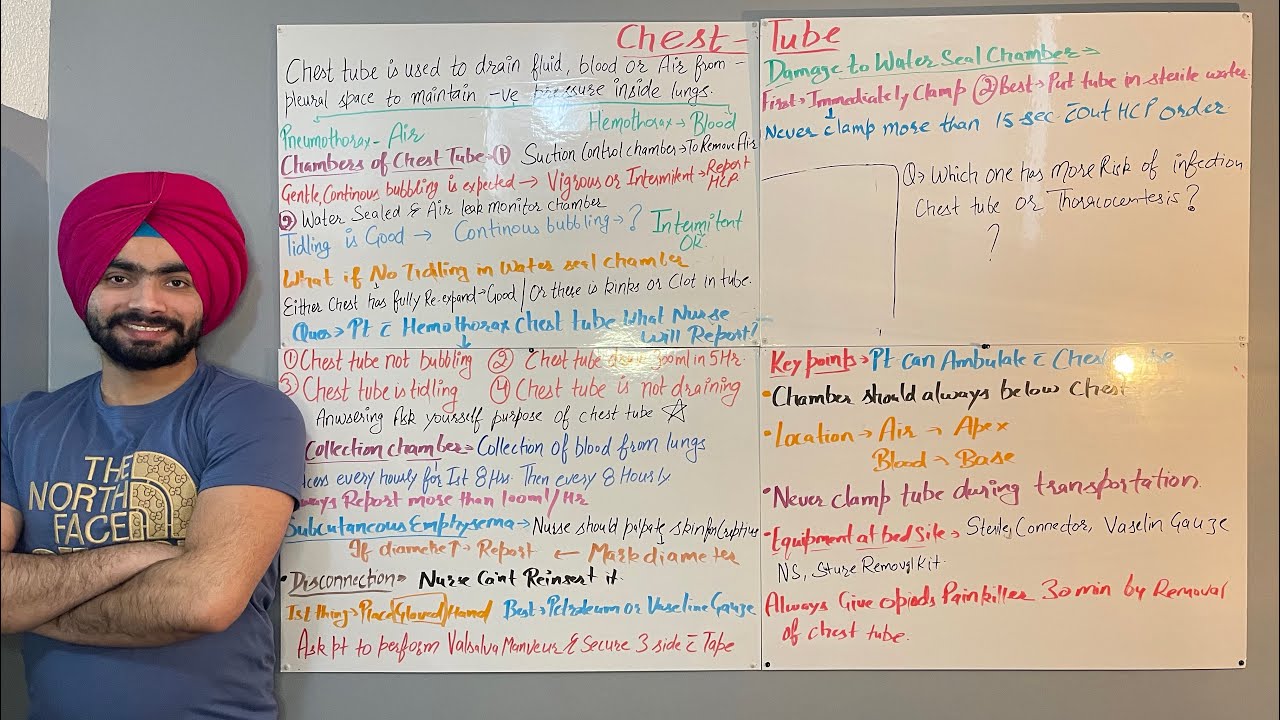 Chest - Tube
Chest tube is used to drain fluid, blood or Air from -
pleural space to maintain -ve pressure inside lungs.
Pneumothorax - Air
Hemothorax → Blood
Chambers of Chest Tube → ① Suction Control chamber → To Remove Air
Gentle, Continous bubbling is expected → Vigrous or Intermitent → Report HCP
② Water Sealed & Air leak monitor chamber
Tidling is Good → Continous bubbling → ? Intermitent OK.
What if No Tidling in Water seal chamber
Either Chest has fully Re-expand → Good / Or there is kinks or Clot in tube.
Ques → Pt c̄ Hemothorax Chest tube What Nurse
Will Report?
① Chest tube not bubbling ② Chest tube 300ml in 5Hr.
③ Chest tube is tidling ④ Chest tube is not draining
Anwsering Ask yourself purpose of chest tube ☆
Collection chamber → Collection of blood from lungs
every hourly for Ist 8 Hrs. Then every 8 Hourly.
Report more than 100ml/Hr
Subcutaneous Emphysema → Nurse should palpate skin for
If diameter ↑ → Report ← Mark diameter
• Disconnection → Nurse Can't Reinsert it.
Ist thing → Place Gloved Hand Best → Petroleum or Vaseline Gauze
Ask pt to perform Valsalva Manveur & Secure 3 side c̄ Tape
Damage to Water Seal Chamber →
First → Immediately Clamp ② Best → Put tube in sterile water.
Never clamp more than 15 sec. c̄out HCP order.
Q → Which one has more Risk of infection
Chest tube or Thoracocentesis?
?
Key points → Pt can Ambulate c̄
• Chamber should always below Chest
• Location → Air → Apex
Blood → Base
• Never clamp tube during transportation.
• Equipment at bed Site → Sterile, Connector, Vaselin Gauze
NS, Sture Removal Kit.
Always Give opiods Painkiller 30 min by Removal
of chest tube.
THE
NORTH
FACE